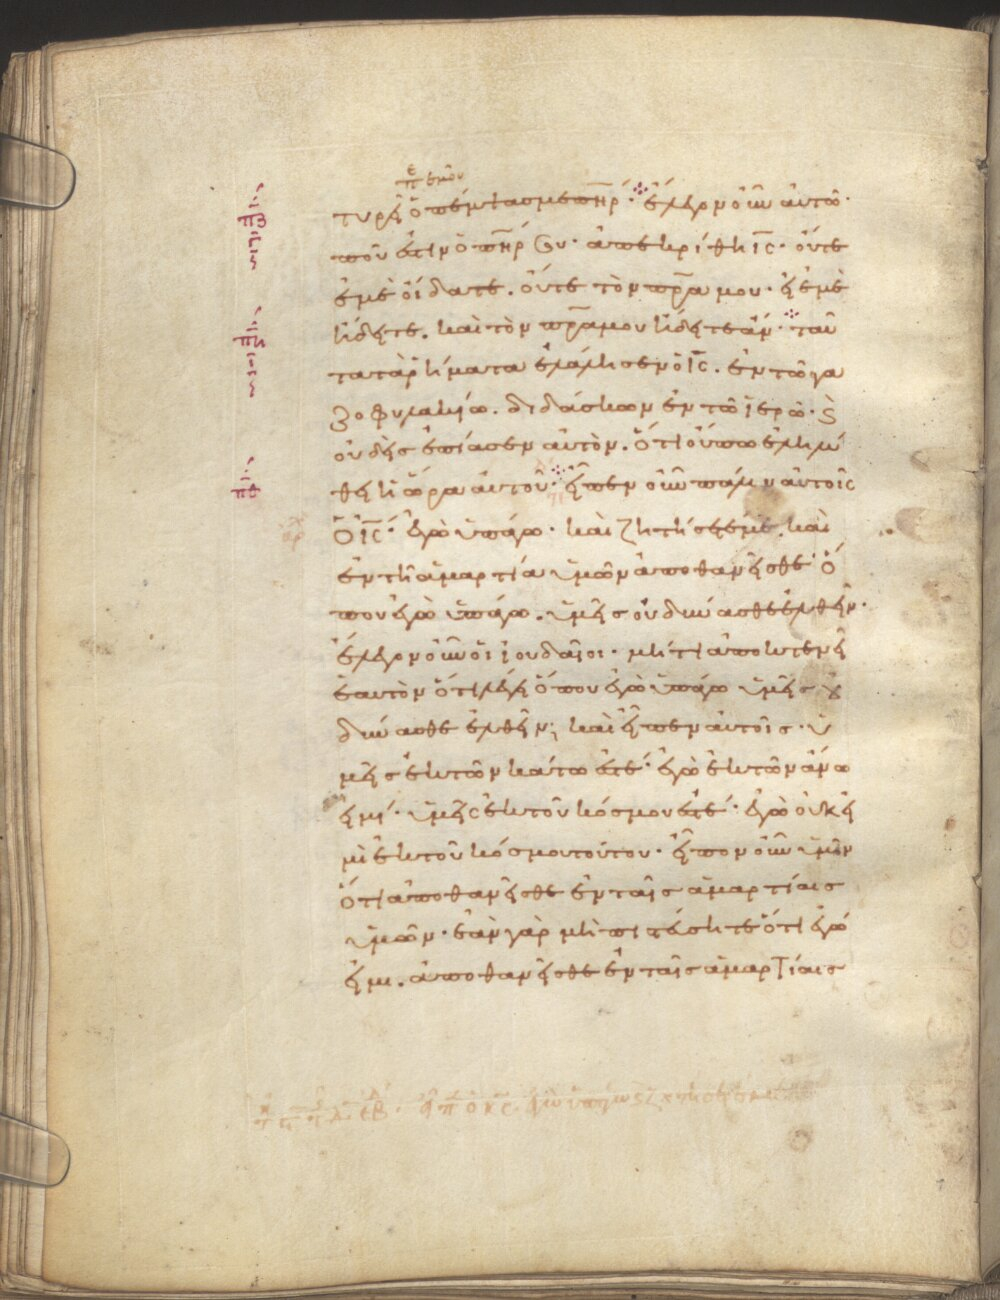 π(ε) ἐμοῦ
τυρεῖ ὁ πέμψας με π̅η̅ρ· ἔλεγον οὖν αὐτῶ·
ποῦ ἐστιν ὁ π̅η̅ρ σου· ἀπεκρίθη ι̅ς̅· οὔτε
ἐμὲ οἴδατε. οὔτε τὸν π̅ρ̅α μου· εἰ ἐμὲ
ἤδειτε. καὶ τὸν π̅ρ̅α μου ἤδειτε ἄν· ταῦ
τα τὰ ῥήματα ἐλάλησεν ὁ ι̅ς̅. ἐν τῶ γα
ζοφυλακίω. διδάσκων ἐν τῶ ἱερῶ· ϗ
οὐδεὶς ἐπίασεν αὐτὸν. ὅτι οὔπω ἐληλύ
θει ἡ ὥρα αὐτοῦ· εἶπεν οὖν πάλιν αὐτοῖς
ὁ ι̅ς̅· ἐγὼ ὑπάγω· καὶ ζητήσετέ με. καὶ
ἐν τῆ ἁμαρτία ὑμῶν ἀποθανεῖσθε· ὅ
που ἐγὼ ὑπάγω. ὑμεῖς οὐ δύνασθε ἐλθεῖν·
ἔλεγον οὖν οἱ ἰουδαῖοι· μήτι ἀποκτενεῖ
ἑαυτὸν ὅτι λέγει ὅπου ἐγὼ ὑπάγω ὑμεῖς οὐ
δύνασθε ἐλθεῖν; καὶ εἶπεν αὐτοῖς· ὑ
μεῖς ἐκ τῶν κάτω ἐστέ· ἐγὼ ἐκ τῶν ἄνω
εἰμί· ὑμεῖς ἐκ τοῦ κόσμου ἐστέ· ἐγὼ οὐκ εἰ
μὶ ἐκ τοῦ κόσμου τούτου· εἶπον οὖν ὑμῖν
ὅτι ἀποθανεῖσθε ἐν ταῖς ἁμαρτίαις
ὑμῶν· ἐὰν γὰρ μὴ πιστεύσητε ὅτι ἐγώ
εἰμι. ἀποθανεῖσθε ἐν ταῖς ἁμαρτίαις